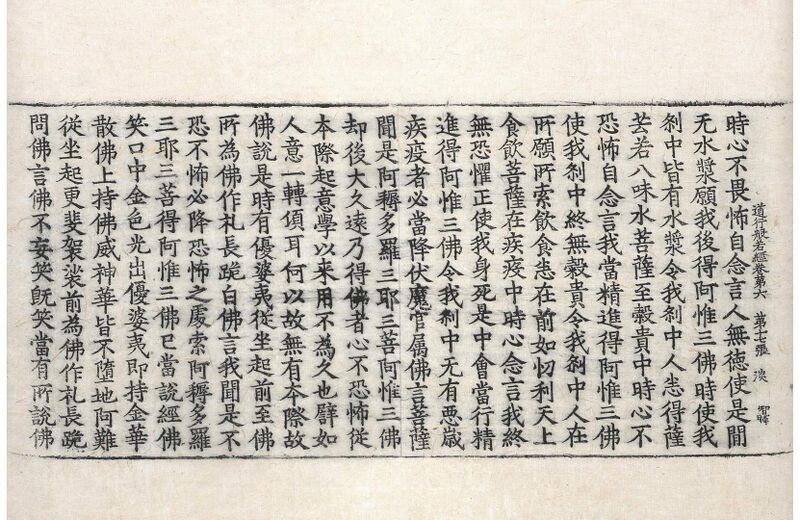 時心不畏怖自念言人無徳使是間
道行般若經卷第六　第十七張　淡
智暐
无水漿願我後得阿惟三佛時使我
刹中皆有水漿令我刹中人悉得薩
芸若八味水菩薩至糓貴中時心不
恐怖自念言我當精進得阿惟三佛
使我刹中終無糓貴令我刹中人在
所願所索飲食悉在前如忉利天上
食飲菩薩在疾疫中時心念言我終
無恐懼正使我身死是中會當行精
進得阿惟三佛令我刹中无有惡歲
疾疫者必當降伏魔官属佛言菩薩
聞是阿耨多羅三耶三菩阿惟三佛
却後大久遠乃得佛者心不恐怖從
本際起意學以来用不為久也譬如
人意一轉頃耳何以故無有夲際故
佛說是時有優婆夷從坐起前至佛
所為佛作礼長跪白佛言我聞是不
恐不怖必降恐怖之處索阿耨多羅
三耶三菩得阿惟三佛已當說經佛
笑口中金色光出優婆夷即持金華
散佛上持佛威神華皆不墮地阿難
從坐起更斐袈裟前為佛作札長跪
問佛言佛不妄笑旣笑當有所說佛